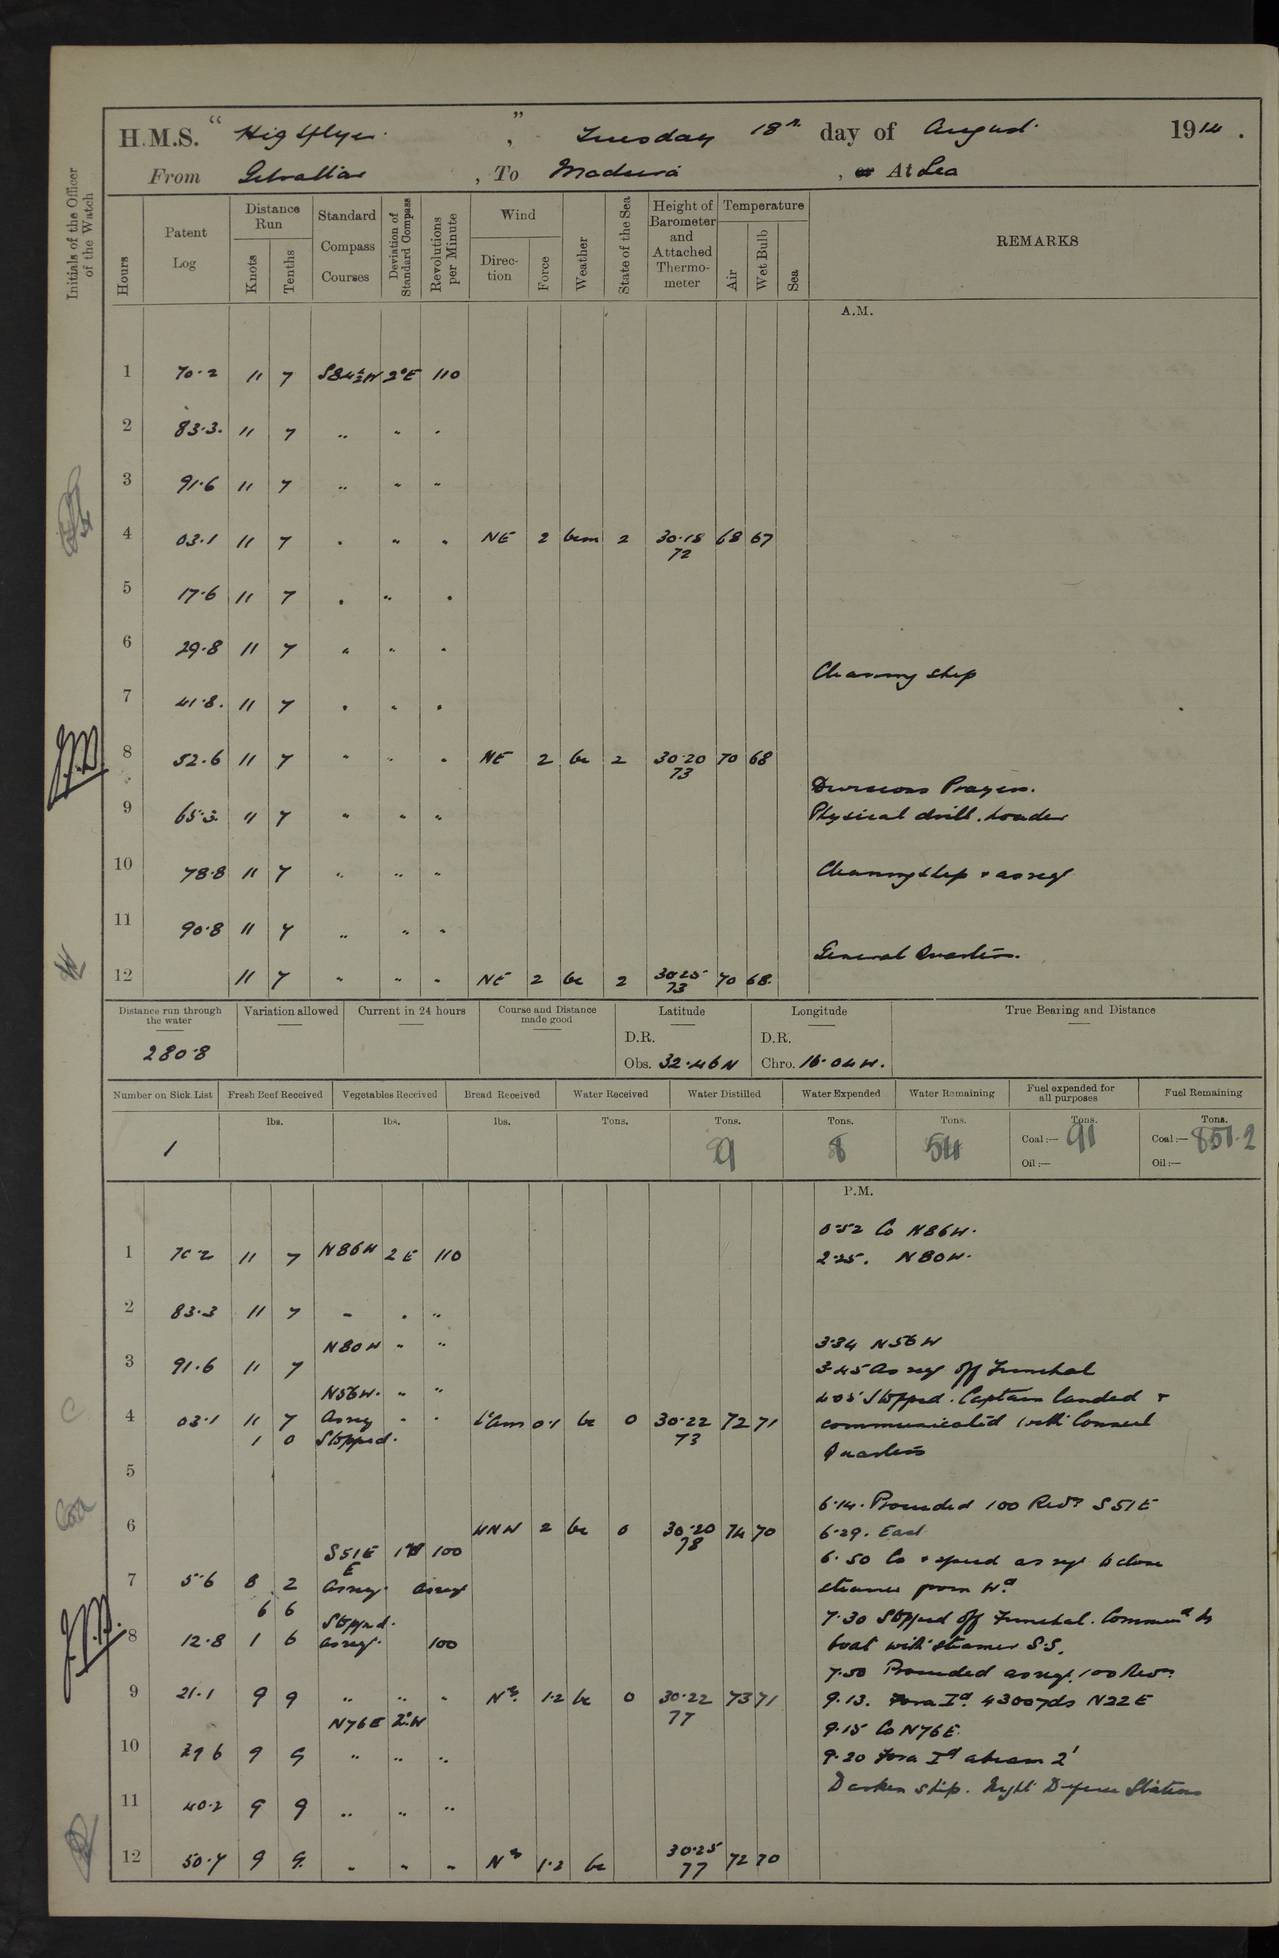 H.M.S. "Highflyer" , Tuesday 18th day of August 1914.
From Gibraltar , To Madeira , or At Sea
Initials of the Officer of the Watch
Hours
Patent Log
Distance Run
Knots
Tenths
Standard Compass Courses
Deviation of Standard Compass
Revolutions per Minute
Wind
Direction
Force
Weather
State of the Sea
Height of Barometer and Attached Thermometer
Temperature
Air
Wet Bulb
Sea
REMARKS
A.M.
1 70.2 11 7 S84½W 2°E 110
2 83.3 11 7 " " "
3 91.6 11 7 " " "
4 03.1 11 7 " " " NE 2 bcm 2 30.18 72 68 67
5 17.6 11 7 " " "
6 29.8 11 7 " " "
Cleaning ship
7 41.8 11 7 " " "
8 52.6 11 7 " " " NE 2 bc 2 30.20 73 70 68
Divisions Prayers.
9 65.3 11 7 " " "
Physical drill. Loader
10 78.8 11 7 " " "
Cleaning ship & as req
11 90.8 11 7 " " "
General Quarters.
12 11 7 " " " NE 2 bc 2 30.25 73 70 68
Distance run through the water
Variation allowed
Current in 24 hours
Course and Distance made good
Latitude
Longitude
True Bearing and Distance
280.8
D.R.
Obs. 32.46N
D.R.
Chro. 16.04W.
Number on Sick List
Fresh Beef Received
Vegetables Received
Bread Received
Water Received
Water Distilled
Water Expended
Water Remaining
Fuel expended for all purposes
Fuel Remaining
lbs. lbs. lbs. Tons. Tons. Tons. Tons. Tons. Tons.
1 9 8 54 Coal:— 91 Coal:— 851.2
Oil:— Oil:—
P.M.
0.52 Co N86W.
1 70.2 11 7 N86W 2E 110
2.25. N80W.
2 83.3 11 7 " " "
N80W " "
3.34 N56W
3 91.6 11 7
3.45 As req off Funchal
N56W. " "
4.05 Stopped. Captain landed &
4 03.1 11 7 As req " " Calm 0.1 bc 0 30.22 73 72 71
communicated with Consul
1 0 Stopped.
Quarters
5
6.14. Proceeded 100 Revs S51E
6 WNW 2 bc 0 30.20 78 74 70
6.29. East
S51E 100
6.50 Co & speed as req to close
E
7 5.6 8 2 As req. as req
steamer from Wd
6 6 Stopped.
7.30 Stopped off Funchal. Commend by
8 12.8 1 6 as req. 100
boat with steamer S.S.
7.50 Proceeded as req. 100 Revs
9 21.1 9 9 " " " Nly 1.2 bc 0 30.22 77 73 71
9.13. Fora Id. 4300yds N22E
N76E 2°W
9.15 Co N76E.
10 29.6 9 9 " " "
9.20 Fora Id abeam 2'
Darken ship. Night Defence Stations
11 40.2 9 9 " " "
12 50.7 9 9 " " " Nly 1.2 bc 30.25 77 72 70